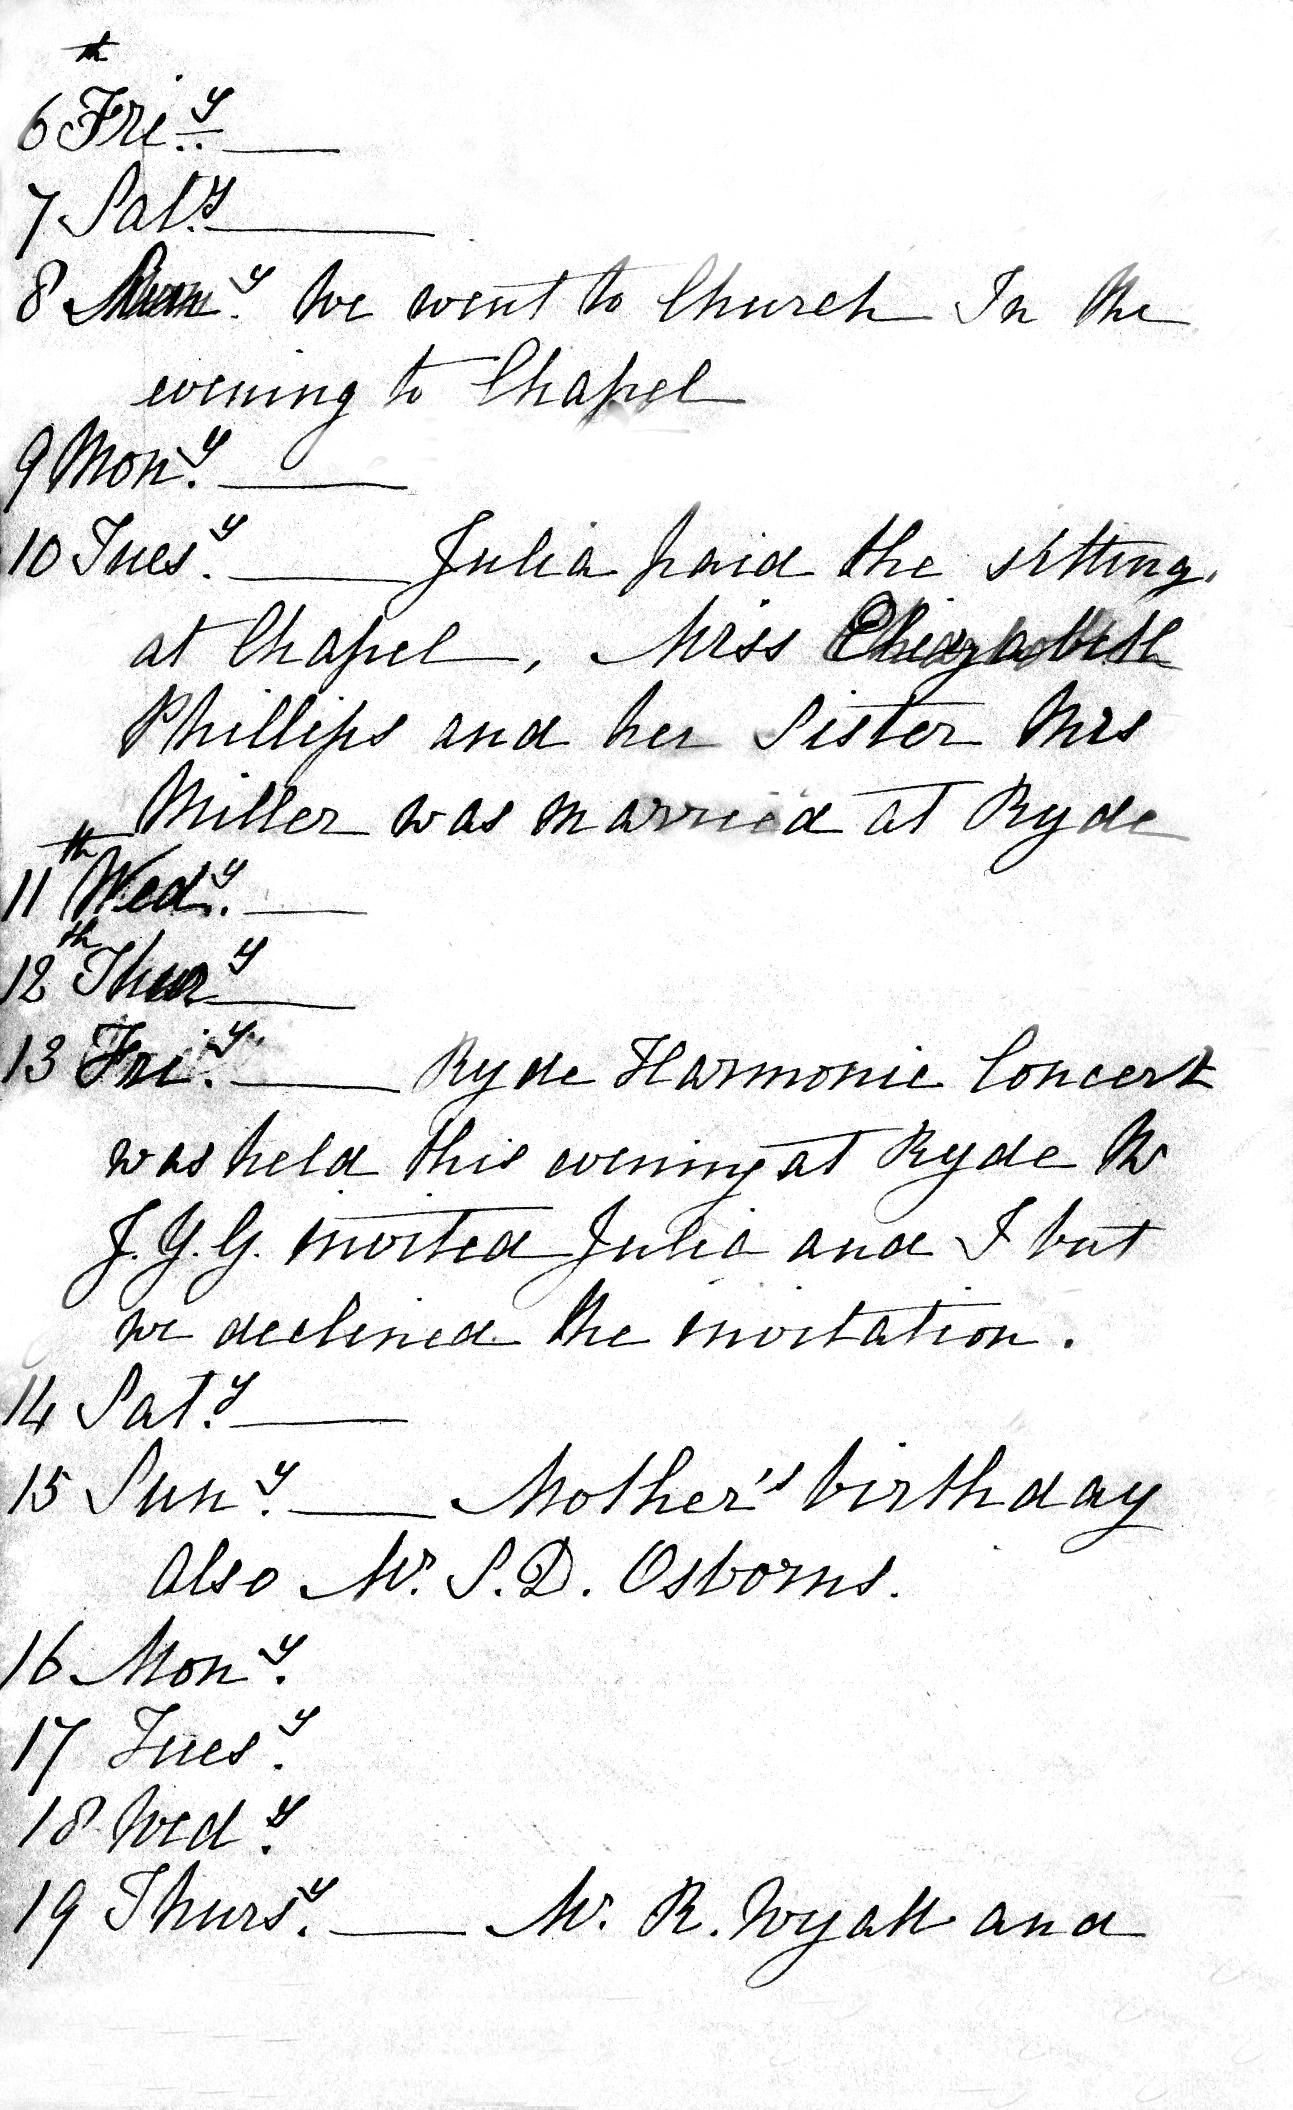 6th Friy. ____
7 Saty. ____
8 Suny. We went to Church In the
evening to Chapel
9 Mony. ____
10 Tuesy. ____ Julia paid the sitting.
at Chapel, Miss Elizabeth
Phillips and her Sister Mrs
Miller was married at Ryde
11th Wedy. ____
12th Thury ____
13 Friy. ____ Ryde Harmonic Concert
was held this evening at Ryde Mr
J.Y.G. invited Julia and I but
we declined the invitation.
14 Saty. ____
15 Suny. ____ Mother's birthday
also Mr. S.D. Osborns.
16 Mony.
17 Tuesy.
18 Wedy.
19 Thursy. ____ Mr. R. Wyatt and